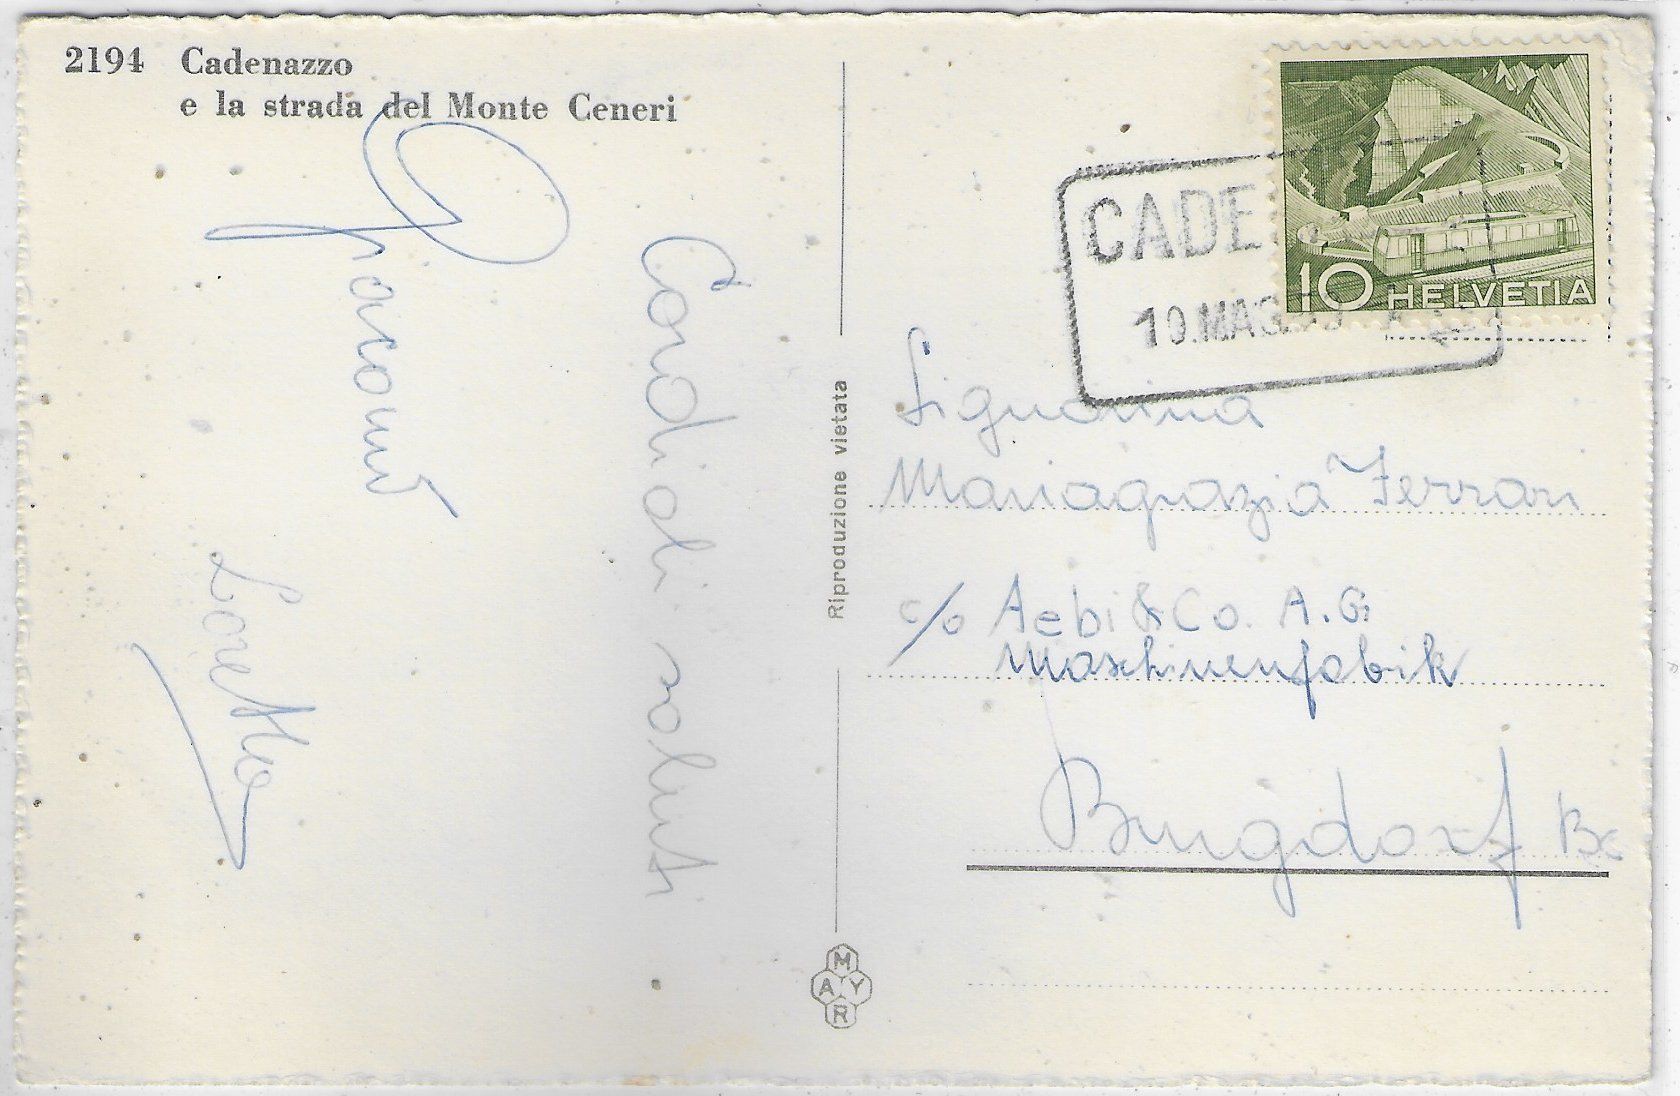 2194 Cadenazzo
e la strada del Monte Ceneri
Cordiali saluti
Giacomo
Loretta
Riproduzione vietata
MAYR
10 HELVETIA
CADE
10.MAG.
Signorina
Mariagrazia Ferrari
c/o Aebi & Co. A.G.
Maschinenfabrik
Burgdorf Be